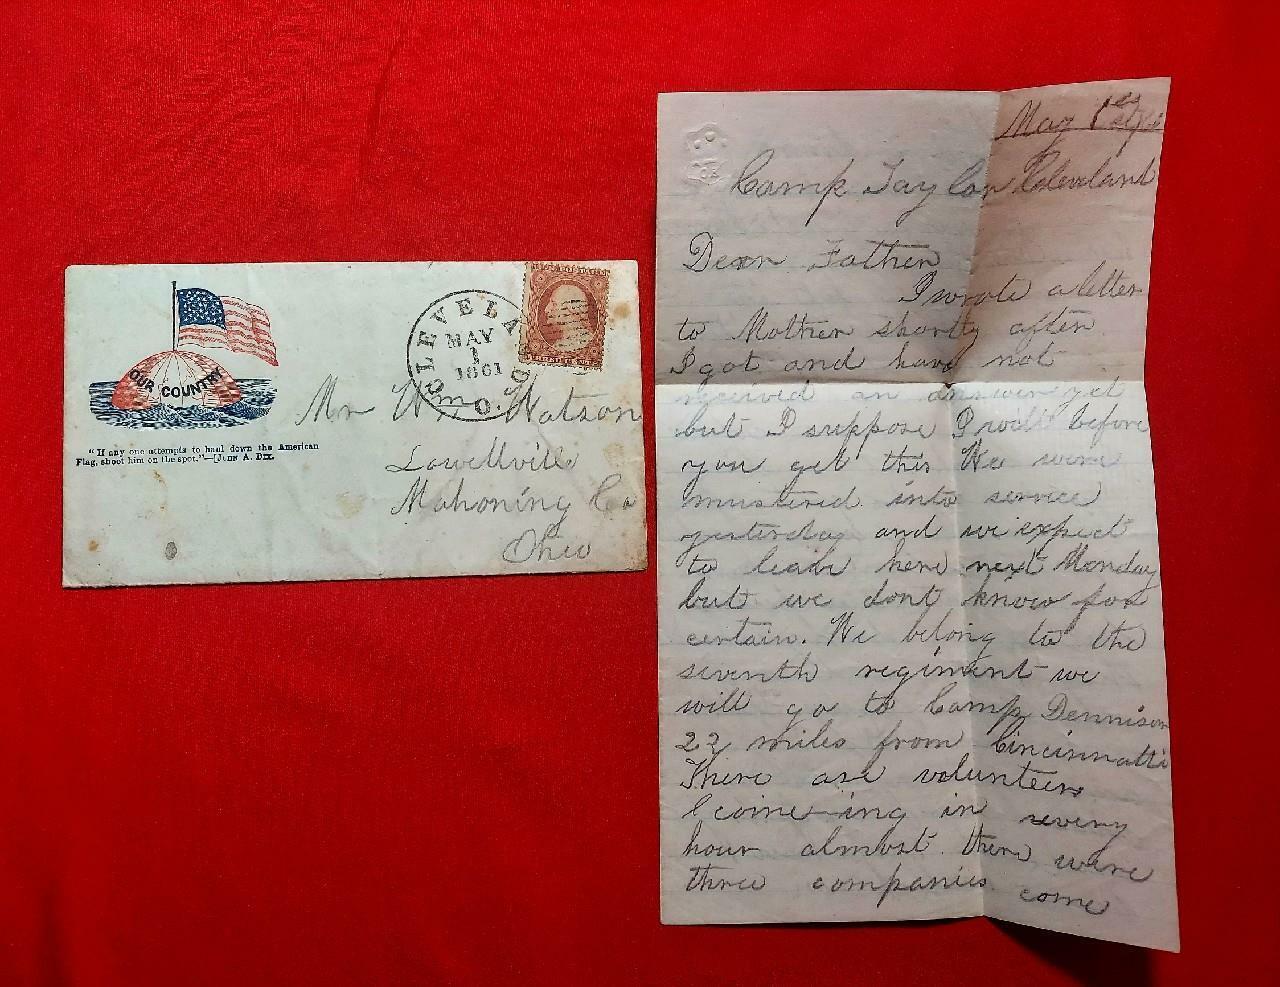 OUR COUNTRY
"If any one attempts to haul down the American
Flag, shoot him on the spot."—[JOHN A. DIX.
CLEVELA
MAY
1
1861
O.
Mr Wm Watson
Lowellville
Mahoning Co
Ohio
May 1st
Camp Taylor Cleveland
Dear Father
I wrote a letter
to Mother shortly after
I got and have not
received an answer yet
but I suppose I will before
you get this We were
mustered into service
yesterday and we expect
to leave here next Monday
but we dont know for
certain. We belong to the
seventh regiment we
will go to Camp Dennison
22 miles from Cincinnatti
There are volunteers
comeing in every
hour almost there were
three companies come